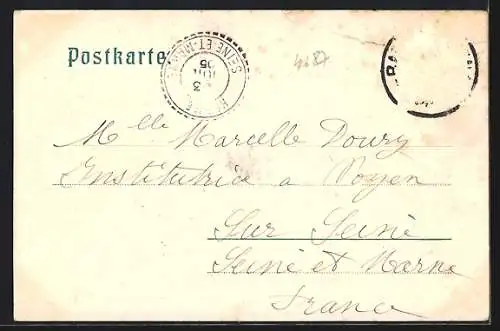 Postkarte
SEINE-ET-MARNE
3
05
4287
Mlle Marcelle Doury
Institutrice a Noyen
Sur Seine
Seine et Marne
France